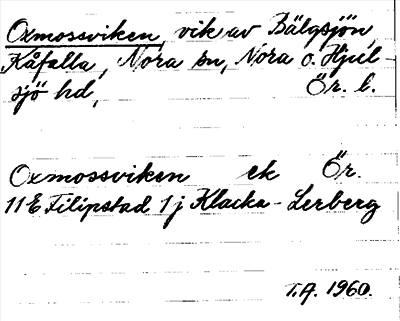 Oxmossviken, vik av Bälgsjön,
Kåfalla, Nora sn, Nora o. Hjul-
sjö hd, Ör. l.
Oxmossviken ek Ör.
11E Filipstad 1j Klacka-Lerberg
T.A. 1960.